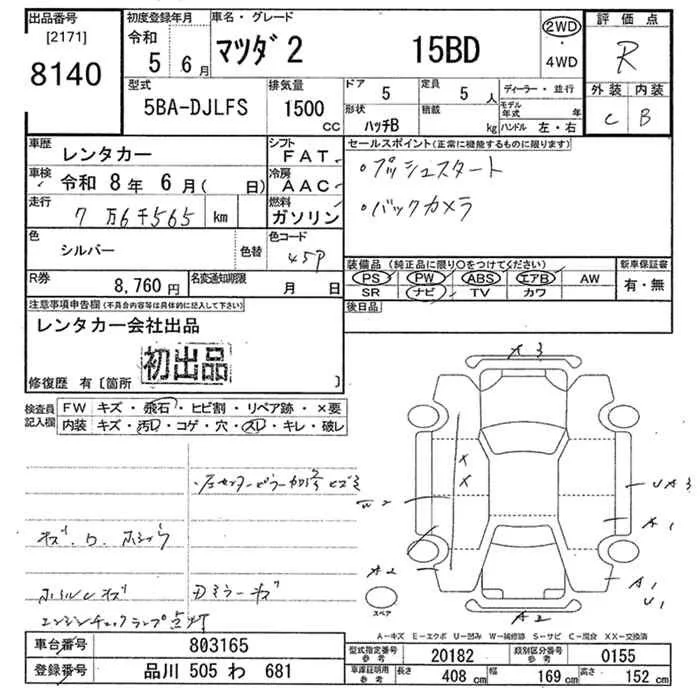 出品番号 [2171] 8140
初度登録年月 令和 5 6月
車名・グレード マツダ2 15BD
2WD・4WD
評価点 R
外装 C 内装 B
型式 5BA-DJLFS
排気量 1500 CC
ドア 5 定員 5人
形状 ハッチB 積載 kg
ディーラー・並行
モデル年式 年
ハンドル 左・右
車歴 レンタカー
シフト FAT
車検 令和 8年 6月( 日)
冷房 AAC
走行 7万6千565 km
燃料 ガソリン
色 シルバー 色替
色コード 45P
R券 8,760円
名変通知期限 月 日
セールスポイント(正常に機能するものに限ります)
・プッシュスタート
・バックカメラ
装備品(純正品に限り○をつけてください) 新車保証書
PS PW ABS エアB AW 有・無
SR ナビ TV カワ
後日品
注意事項申告欄(不具合内容等は具体的に記入して下さい)
レンタカー会社出品
初出品
修復歴 有〔箇所 〕
検査員記入欄 FW キズ・飛石・ヒビ割・リペア跡・×要
内装 キズ・汚レ・コゲ・穴・スレ・キレ・破レ
X3
W2
X
X
UA3
A1
A2
A1
U1
A2
スペア
ホイルキズ
エンジンチェックランプ点灯
A-キズ E-エクボ U-凹み W-補修跡 S-サビ C-腐食 XX-交換済
車台番号 803165
登録番号 品川 505 わ 681
型式指定番号 参考 20182 類別区分番号 参考 0155
車庫証明用 参考 長さ 408 cm 幅 169 cm 高さ 152 cm